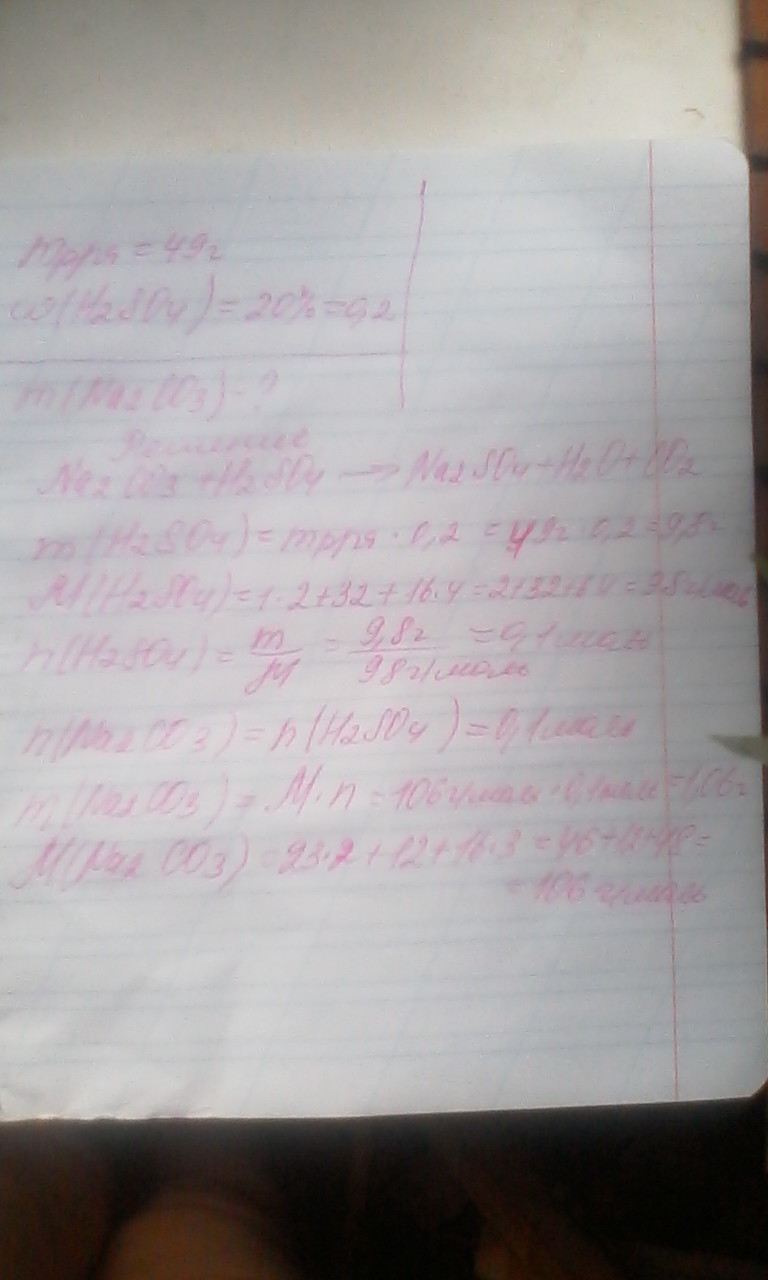 mр-ра = 49г
ω(H2SO4) = 20% = 0,2
m(Na2CO3) - ?
Решение
Na2CO3 + H2SO4 → Na2SO4 + H2O + CO2
m(H2SO4) = mр-ра · 0,2 = 49г · 0,2 = 9,8г
M(H2SO4) = 1·2+32+16·4 = 2+32+64 = 98г/моль
n(H2SO4) = m/M = 9,8г/98г/моль = 0,1моль
n(Na2CO3) = n(H2SO4) = 0,1моль
m(Na2CO3) = M·n = 106г/моль · 0,1моль = 1,06г
M(Na2CO3) = 23·2+12+16·3 = 46+12+48 =
= 106 г/моль